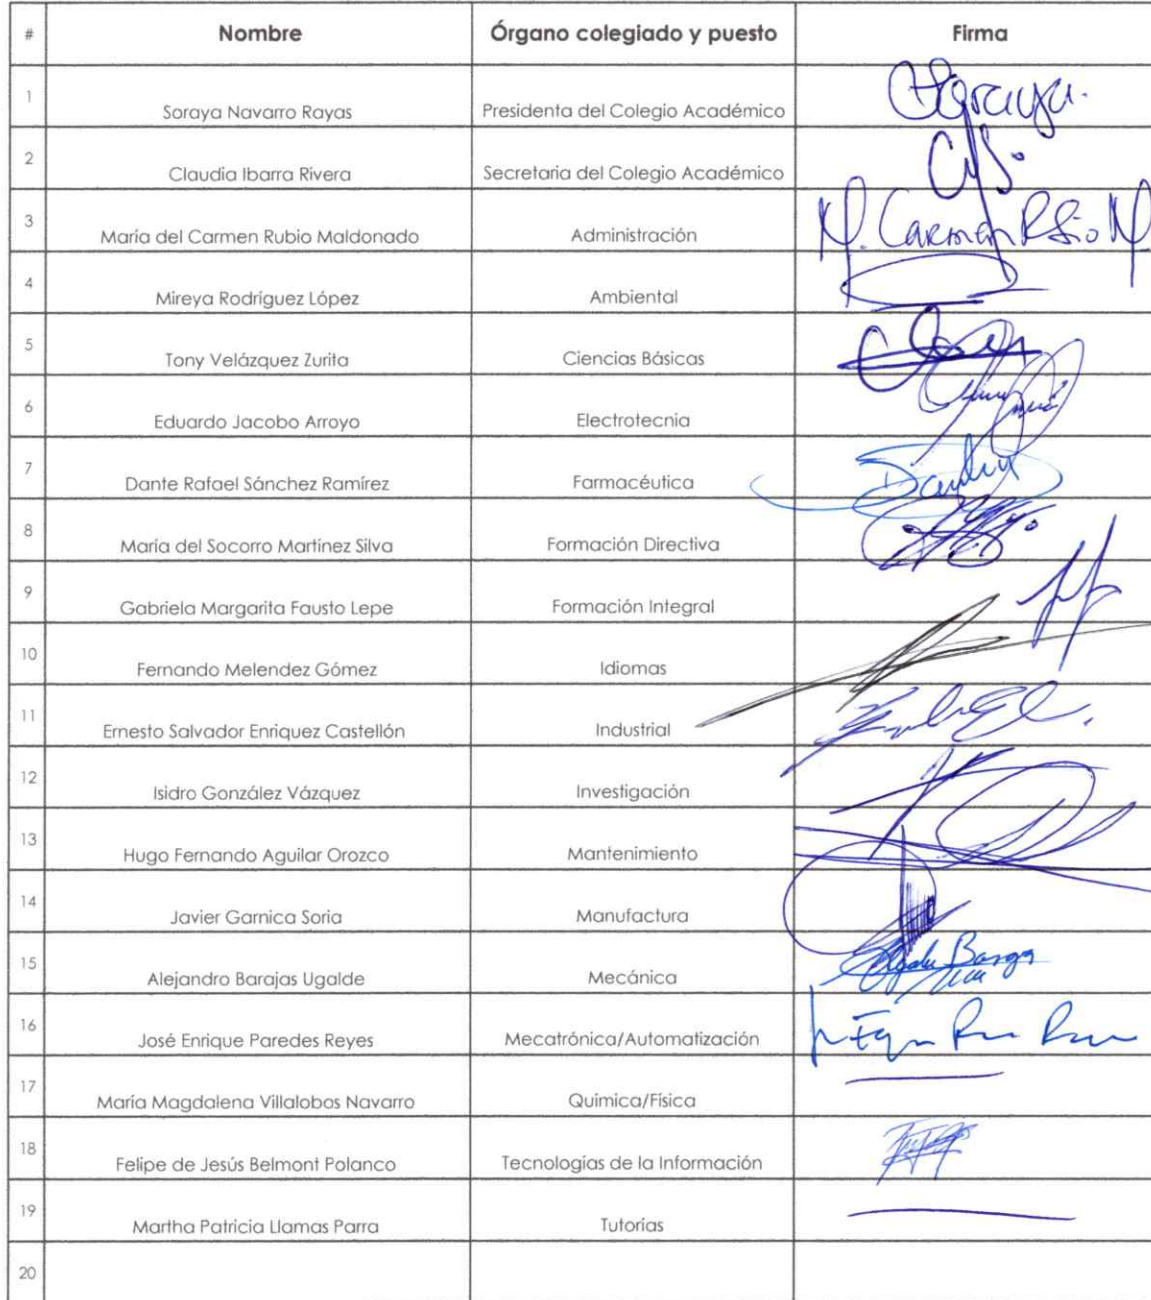 # Nombre Órgano colegiado y puesto Firma
1 Soraya Navarro Rayas Presidenta del Colegio Académico Soraya
2 Claudia Ibarra Rivera Secretaria del Colegio Académico
3 María del Carmen Rubio Maldonado Administración M. Carmen Rubio M
4 Mireya Rodríguez López Ambiental
5 Tony Velázquez Zurita Ciencias Básicas
6 Eduardo Jacobo Arroyo Electrotecnia
7 Dante Rafael Sánchez Ramírez Farmacéutica
8 María del Socorro Martínez Silva Formación Directiva
9 Gabriela Margarita Fausto Lepe Formación Integral
10 Fernando Melendez Gómez Idiomas
11 Ernesto Salvador Enriquez Castellón Industrial
12 Isidro González Vázquez Investigación
13 Hugo Fernando Aguilar Orozco Mantenimiento
14 Javier Garnica Soria Manufactura
15 Alejandro Barajas Ugalde Mecánica
16 José Enrique Paredes Reyes Mecatrónica/Automatización
17 María Magdalena Villalobos Navarro Química/Física
18 Felipe de Jesús Belmont Polanco Tecnologías de la Información
19 Martha Patricia Llamas Parra Tutorías
20